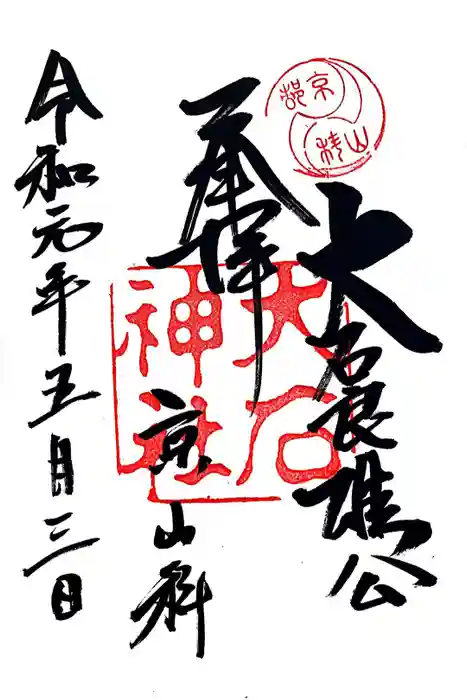 京都
山科
大石良雄公
奉拝
大石
神社
京山科
令和元年五月三日